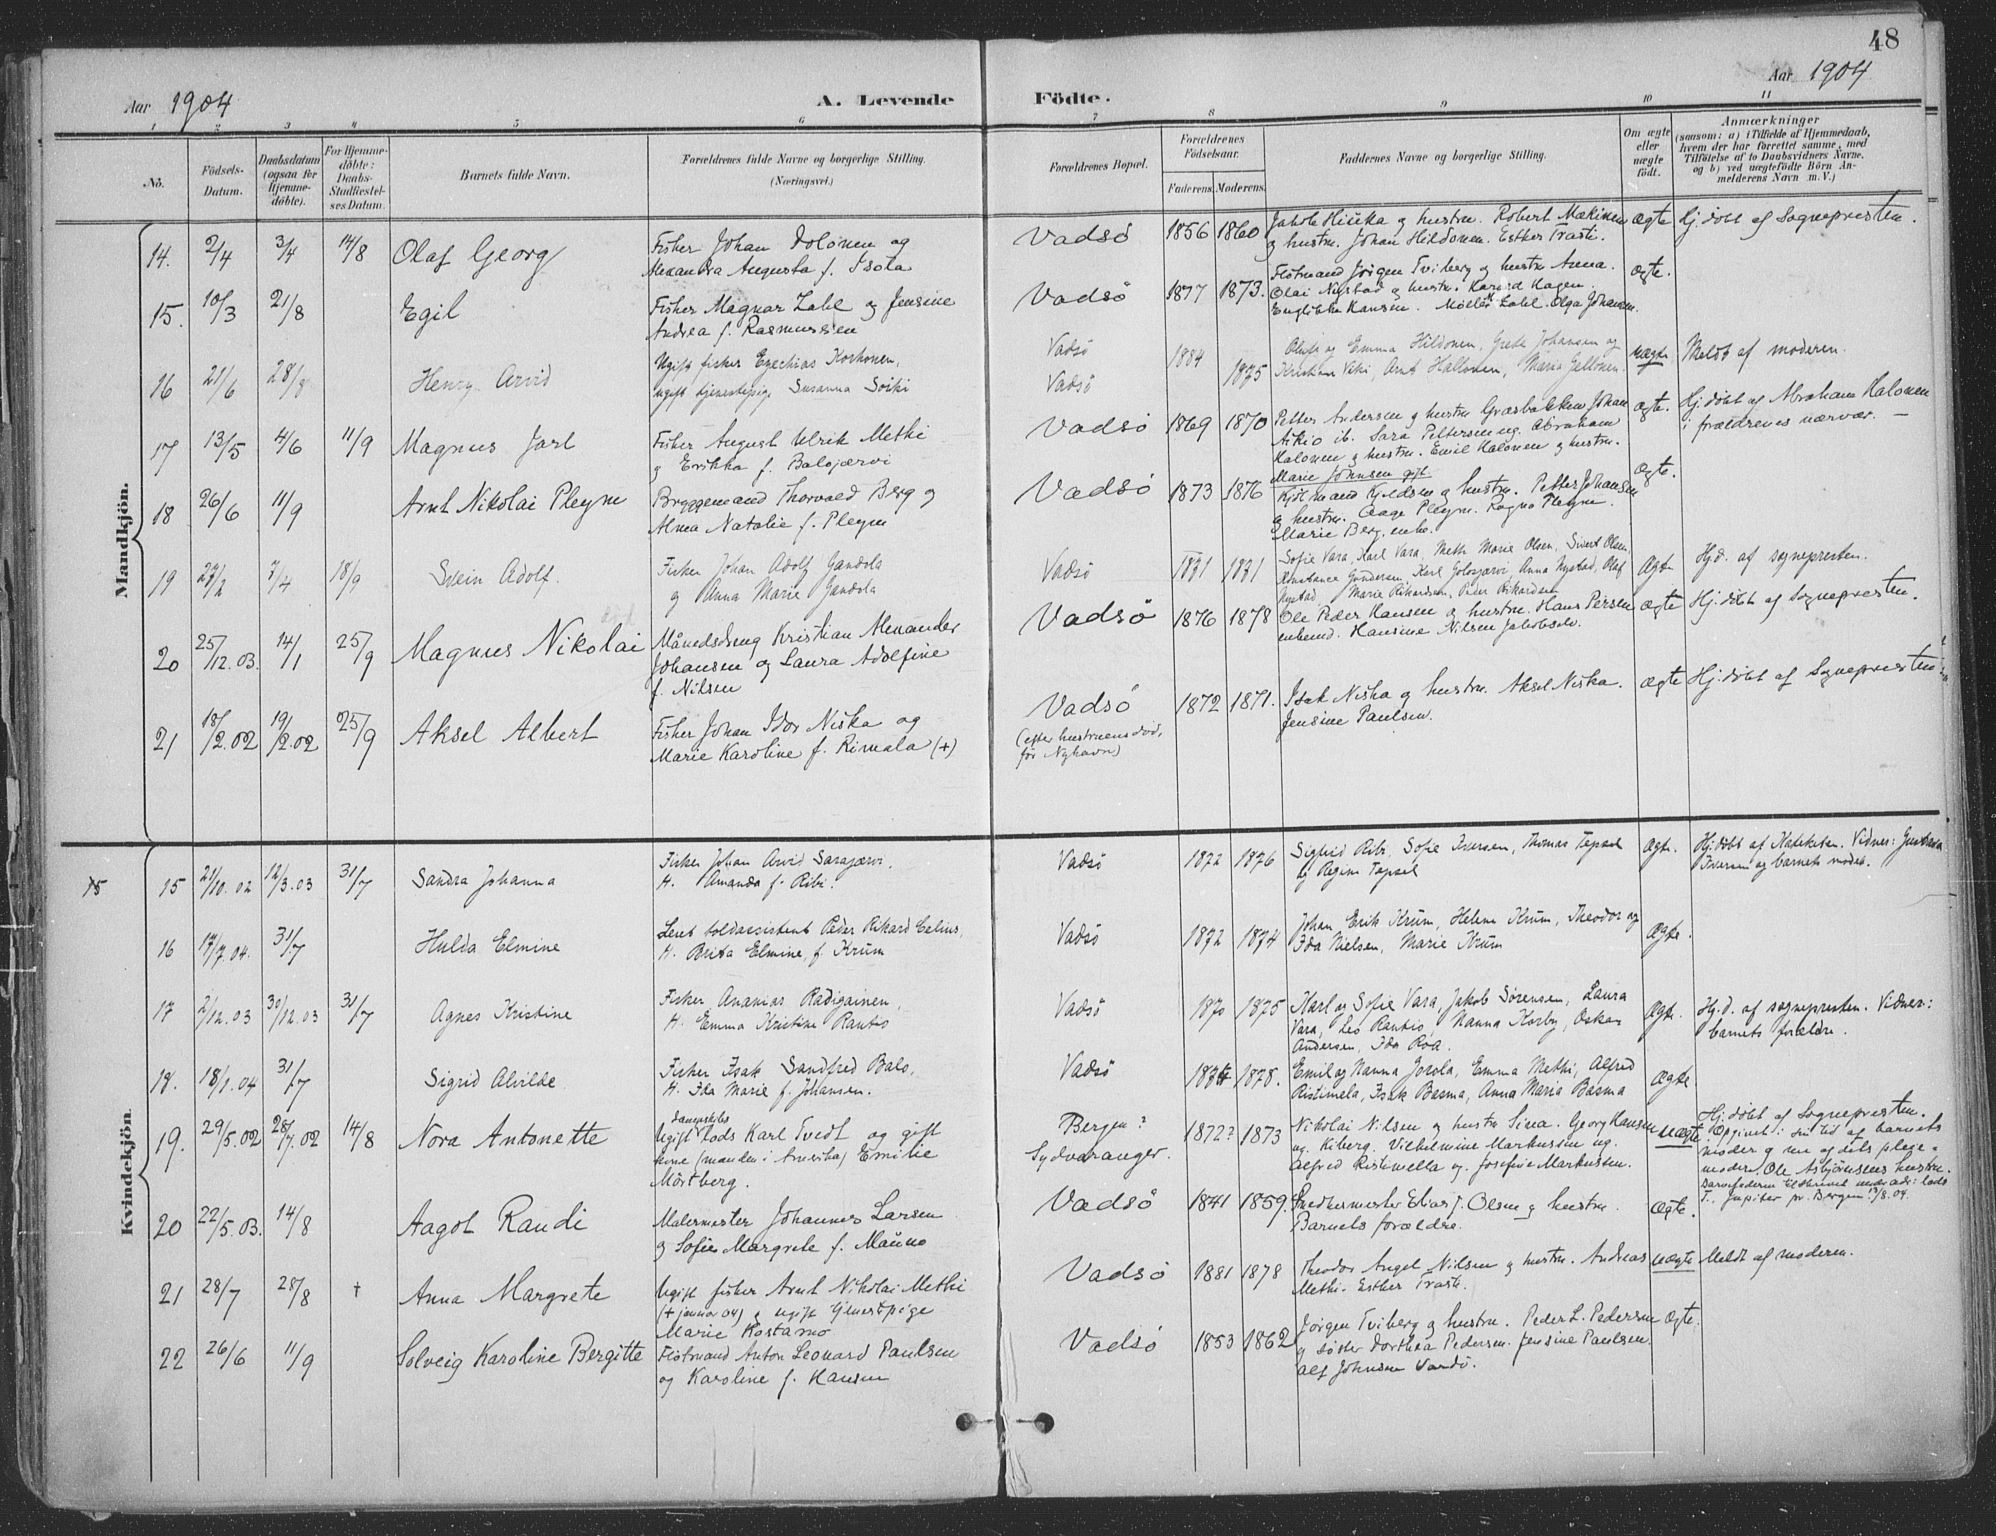 48
Aar 1904
A. Levende
Födte.
Aar 1904
1 2 3 4 5 6 7 8 9 10 11
No.
Födsels-
Datum.
Daabsdatum
(ogsaa for
Hjemme-
döbte).
For Hjemme-
döbte:
Daabs-
Stadfæstel-
ses Datum.
Barnets fulde Navn.
Forældrenes fulde Navne og borgerlige Stilling.
(Næringsvei.)
Forældrenes Bopæl.
Forældrenes
Födselsaar.
Faderens.
Moderens.
Faddernes Navne og borgerlige Stilling.
Om ægte
eller
uægte
födt.
Anmærkninger
(saasom: a) i Tilfælde af Hjemmedaab,
hvem der har forrettet samme, med
Tilföielse af to Daabsvidners Navne,
og b) ved uægtefödte Börn An-
melderens Navn m. V.)
Mandkjön.
14. 2/4 3/4 14/8 Olaf Georg
Fisker Johan Dolonen og
Alexandra Augusta f. Isola
Vadsö 1856 1860
Jakob Hiuka og hustru. Robert Mækinen
og hustru. Johan Hildonen. Esther Trasti.
ægte Hj.döbt af Sognepresten.
15. 10/3 21/8 Egil
Fisker Magnar Zahl og Jensine
Andrea f. Rasmussen
Vadsö 1877 1873.
Flötmand Jörgen Tviberg og hustru Anna.
Olai Nystad og hustru. Karard Hagen.
Hansen. Möller Zahl. Olga Johansen.
ægte.
16 21/6 28/8 Henry Arvid
Ugift fisker Ezechias Korhonen,
ugift tjenestepige Susanna Soiki
Vadsö 1884
Vadsö 1875
Oluf og Emma Hildonen, Grete Johansen og
Kristian Viki, Arnt Hallonen, Maria Jellonen.
uægte Meldt af moderen.
17 13/5 4/6 11/9 Magnus Jarl
Fisker August Ulrik Methi
og Erikka f. Balojærvi
Vadsö 1869 1870
Petter Andersen og hustru Græsbakken Johan
Akio ib. Sara Pettersen ug. Abraham
Halonen og hustru. Emil Halonen og hustru.
Marie Johnsen gift.
ægte. Hj.döbt af Abraham Halonen
i forældrenes nærvær. —
18 26/6 11/9 Arnt Nikolai Pleym
Bryggemand Thorvald Berg og
Alma Natalie f. Pleym
Vadsö 1873 1876
Kjölmand Kjeldsen og hustru. Petter Johansen
og hustru. Aage Pleym. Ragna Pleym.
Marie Berg. enke.
ægte.
19 27/2 7/4 18/9 Svein Adolf.
Fisker Johan Adolf Gandola
og Anna Marie Jandola
Vadsö 1871 1871
Sofie Vara, Karl Vara, Meth Marie Olsen, Sivert Olsen,
Konstance Gundersen, Karl Golosjarvi Anna Nystad, Olaf
Nystad, Marie Rikardsen, Peder Rikardsen
Ægte Hj.d. af sognepresten.
20 25/12.03. 14/1 25/9 Magnus Nikolai
Månedsdreng Kristian Alexander
Johansen og Laura Adolfine
f. Nilsen
Vadsö 1876 1878
Ole Peder Hansen og hustru. Hans Persen
enkemd. Hansine Nilsen Jakobselv.
ægte Hj.döbt af Sognepresten.
21 18/2.02 19/2.02 25/9 Aksel Albert
Fisker Johan Idor Niska og
Marie Karoline f. Rimala (+)
Vadsö
(efter hustruens död,
för Nyhavn)
1872 1871.
Isak Niska og hustru. Aksel Niska.
Jensine Paulsen.
ægte Hj.döbt af Sognepresten
Kvindekjön.
15
15 21/10.02 12/3.03 31/7 Sandra Johanna
Fisker Johan Arvid Sarajærvi
H. Amanda f. Ribi.
Vadsö 1872 1876
Sigfrid Ribi, Sofie Iversen, Thomas Tapsel
og Regine Tapsel
Ægte. Hj.döbt af Kateketen. Vidner:
Iversen og barnets moder.
16 17/7.04. 31/7 Hulda Elmine
Leret toldassistent Peder Rikard Celius,
H. Brita Elmine, f. Krüm
Vadsö 1872 1874
Johan Erik Krüm, Helene Krüm, Theodor og
Ida Nielsen, Marie Krüm
Ægte.
17 2/12.03 30/12.03 31/7 Agnes Kristine
Fisker Ananias Radigainen,
H. Emma Kristine Rantio
Vadsö 1870 1875
Karl og Sofie Vara, Jakob Sørensen, Laura
Vara, Leo Rantio, Nanna Korby, Oskar
Andersen, Ida Roa.
Ægte. Hj.d. af sognepresten. Vidner:
barnets forældre.
18. 18/1.04 31/7 Sigrid Alvilde
Fisker Isak Sandfred Balo,
H. Ida Marie f. Johansen.
Vadsö 1874 1878.
Emil og Nanna Josola, Emma Methi, Alfred
Ristimela, Isak Basma, Anna Maria Basma
Ægte
19. 29/5.02 28/7.02 14/8 Nora Antonette
dampskibs
Ugift Lods Karl Tvedt og gift
kone (manden i Amerika) Emilie
Mörtberg.
Bergen?
Sydvaranger.
1872? 1873
Nikolai Nilsen og hustru Sina. Georg Hansen
ug. Kiberg. Vilhelmine Markussen ug.
Alfred Ristimella ug. Josefine Markussen.
uægte. Hj.döbt af Sognepresten.
Opgivet i sin tid af barnets
moder og nu af dets pleje-
moder, Ole Asbjörnsens hustru.
Barnefaderen tilskrevet under adr: lods
T. Jupiter pr. Bergen 17/8.04.
20 22/5.03. 14/8 Aagot Randi
Malermester Johannes Larsen
og Sofie Margrete f. Mauno
Vadsö 1841 1859.
Snedkermester Elias J. Olsen og hustru.
Barnets forældre.
ægte.
21 28/7 28/8 † Anna Margrete
Ugift fisker Arnt Nikolai Methi
(+ januar 04) og ugift tjenestpige
Marie Kostamo
Vadsö 1881 1878
Theodor Angel Nilsen og hustru. Andreas
Methi. Esther Trasti.
uægte Meldt af moderen.
22 26/6 11/9 Solveig Karoline Bergitte
Flötmand Anton Leonard Paulsen
og Karoline f. Hansen
Vadsö 1853 1862
Jörgen Tviberg og hustru. Peder L. Pedersen
og söster Dorthea Pedersen. Jensine Paulsen.
Alf Johnsen Vardö.
ægte.